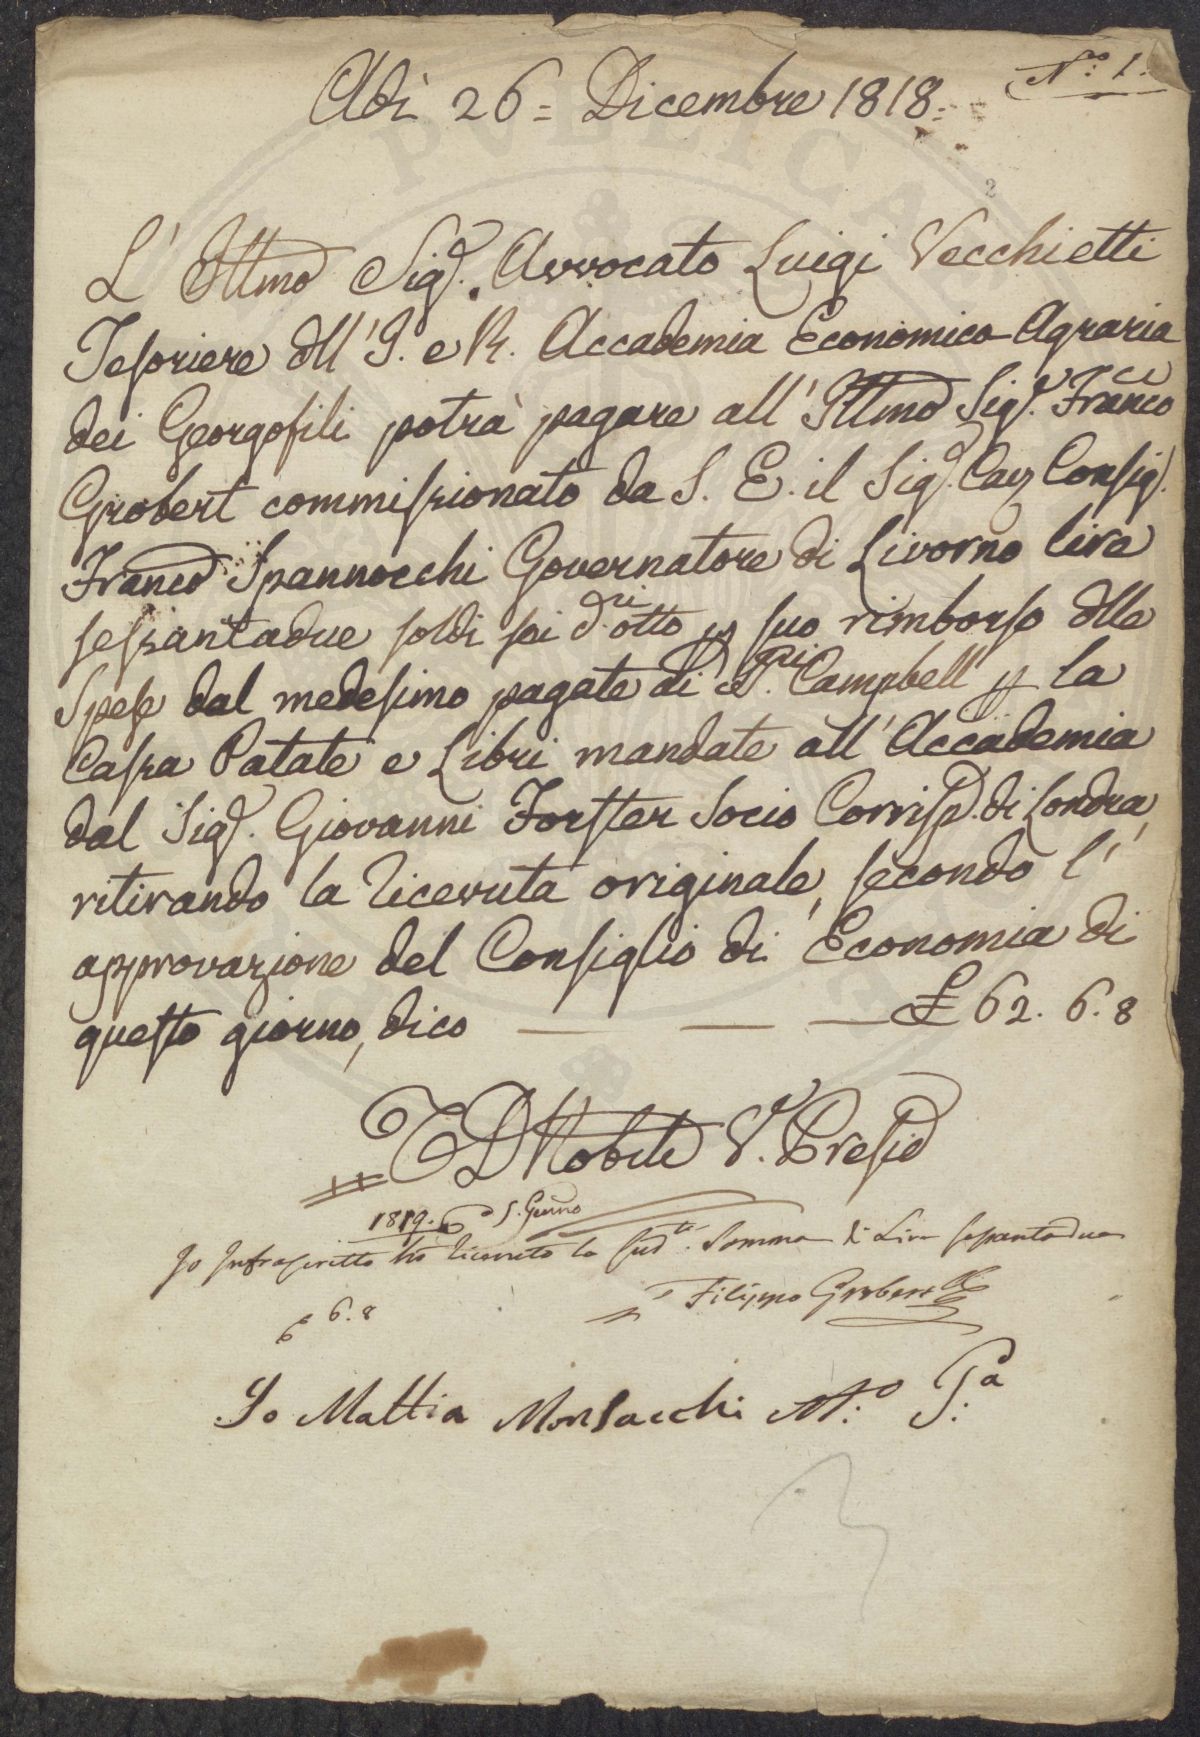 N.º 1.
Adì 26 = Dicembre 1818 =
2
L' Illmo Sigr. Avvocato Luigi Vecchietti
Tesoriere dll' I. e R. Accademia Economico-Agraria
dei Georgofili potrà pagare all' Illmo Sigr. Franco
Grobert commissionato da S. E. il Sigr. Cav. Consigr.
Franco Spannocchi Governatore di Livorno lire
sessantadue soldi sei dri otto p suo rimborso dlle
Spese dal medesimo pagate ai Sri. Campbell p la
Cassa Patate e Libri mandate all' Accademia
dal Sigr. Giovanni Forster Socio Corrispd. di Londra,
ritirando la ricevuta originale, secondo l'
approvazione del Consiglio di Economia di
questo giorno, dico — — — £ 62. 6. 8
Nobili V. Presid
1819. 5. Genno
Io Infrascritto ho ricevuto la sudta. Somma di Lire sessantadue
6. 8
Filippo Grobert
Io Mattia Monsacchi Mo. Pa.